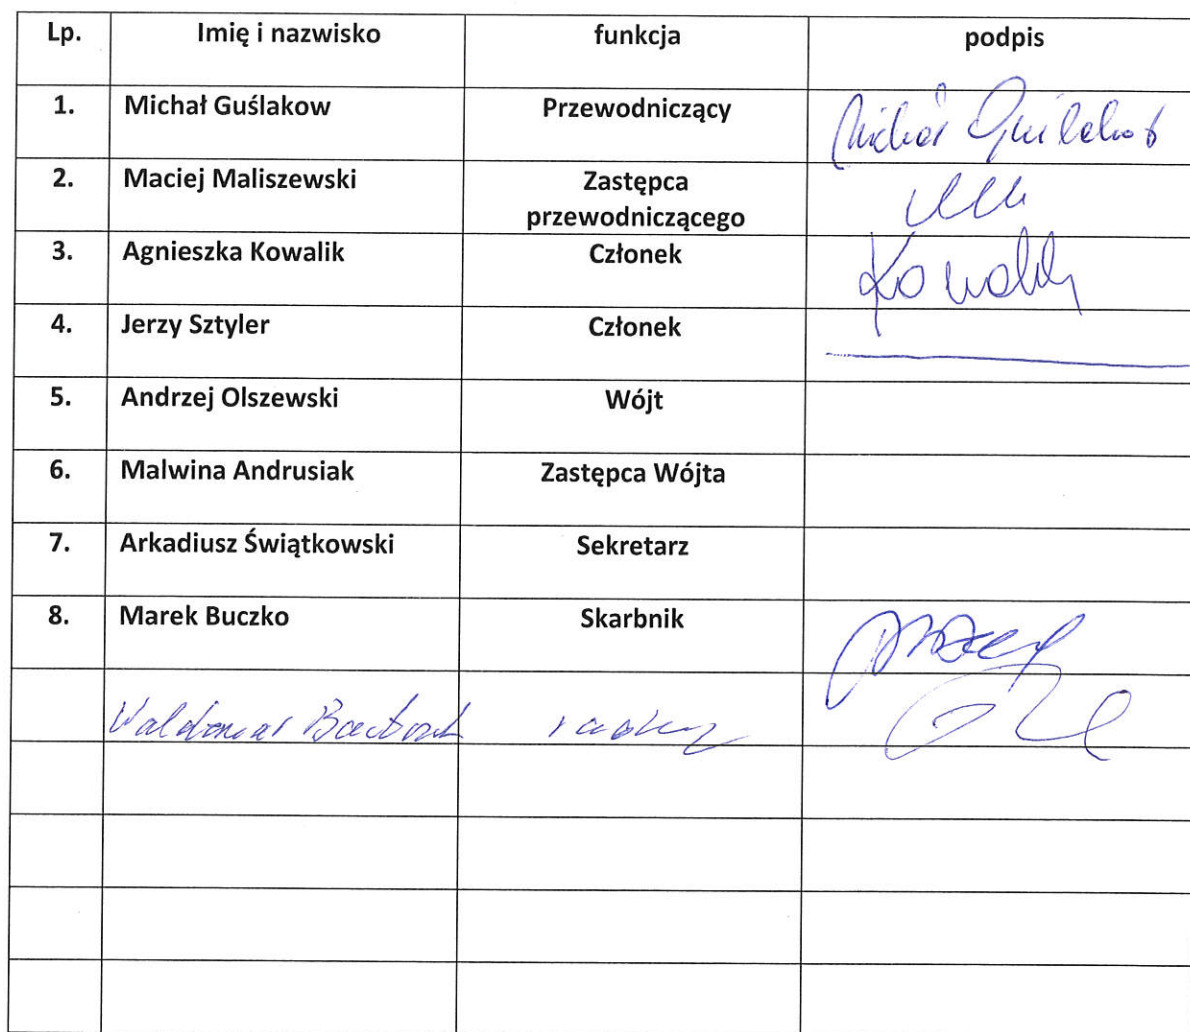 Lp. Imię i nazwisko funkcja podpis
1. Michał Guślakow Przewodniczący Michał Guślakow
2. Maciej Maliszewski Zastępca
przewodniczącego
3. Agnieszka Kowalik Członek Kowalik
4. Jerzy Sztyler Członek
5. Andrzej Olszewski Wójt
6. Malwina Andrusiak Zastępca Wójta
7. Arkadiusz Świątkowski Sekretarz
8. Marek Buczko Skarbnik
Waldemar radny